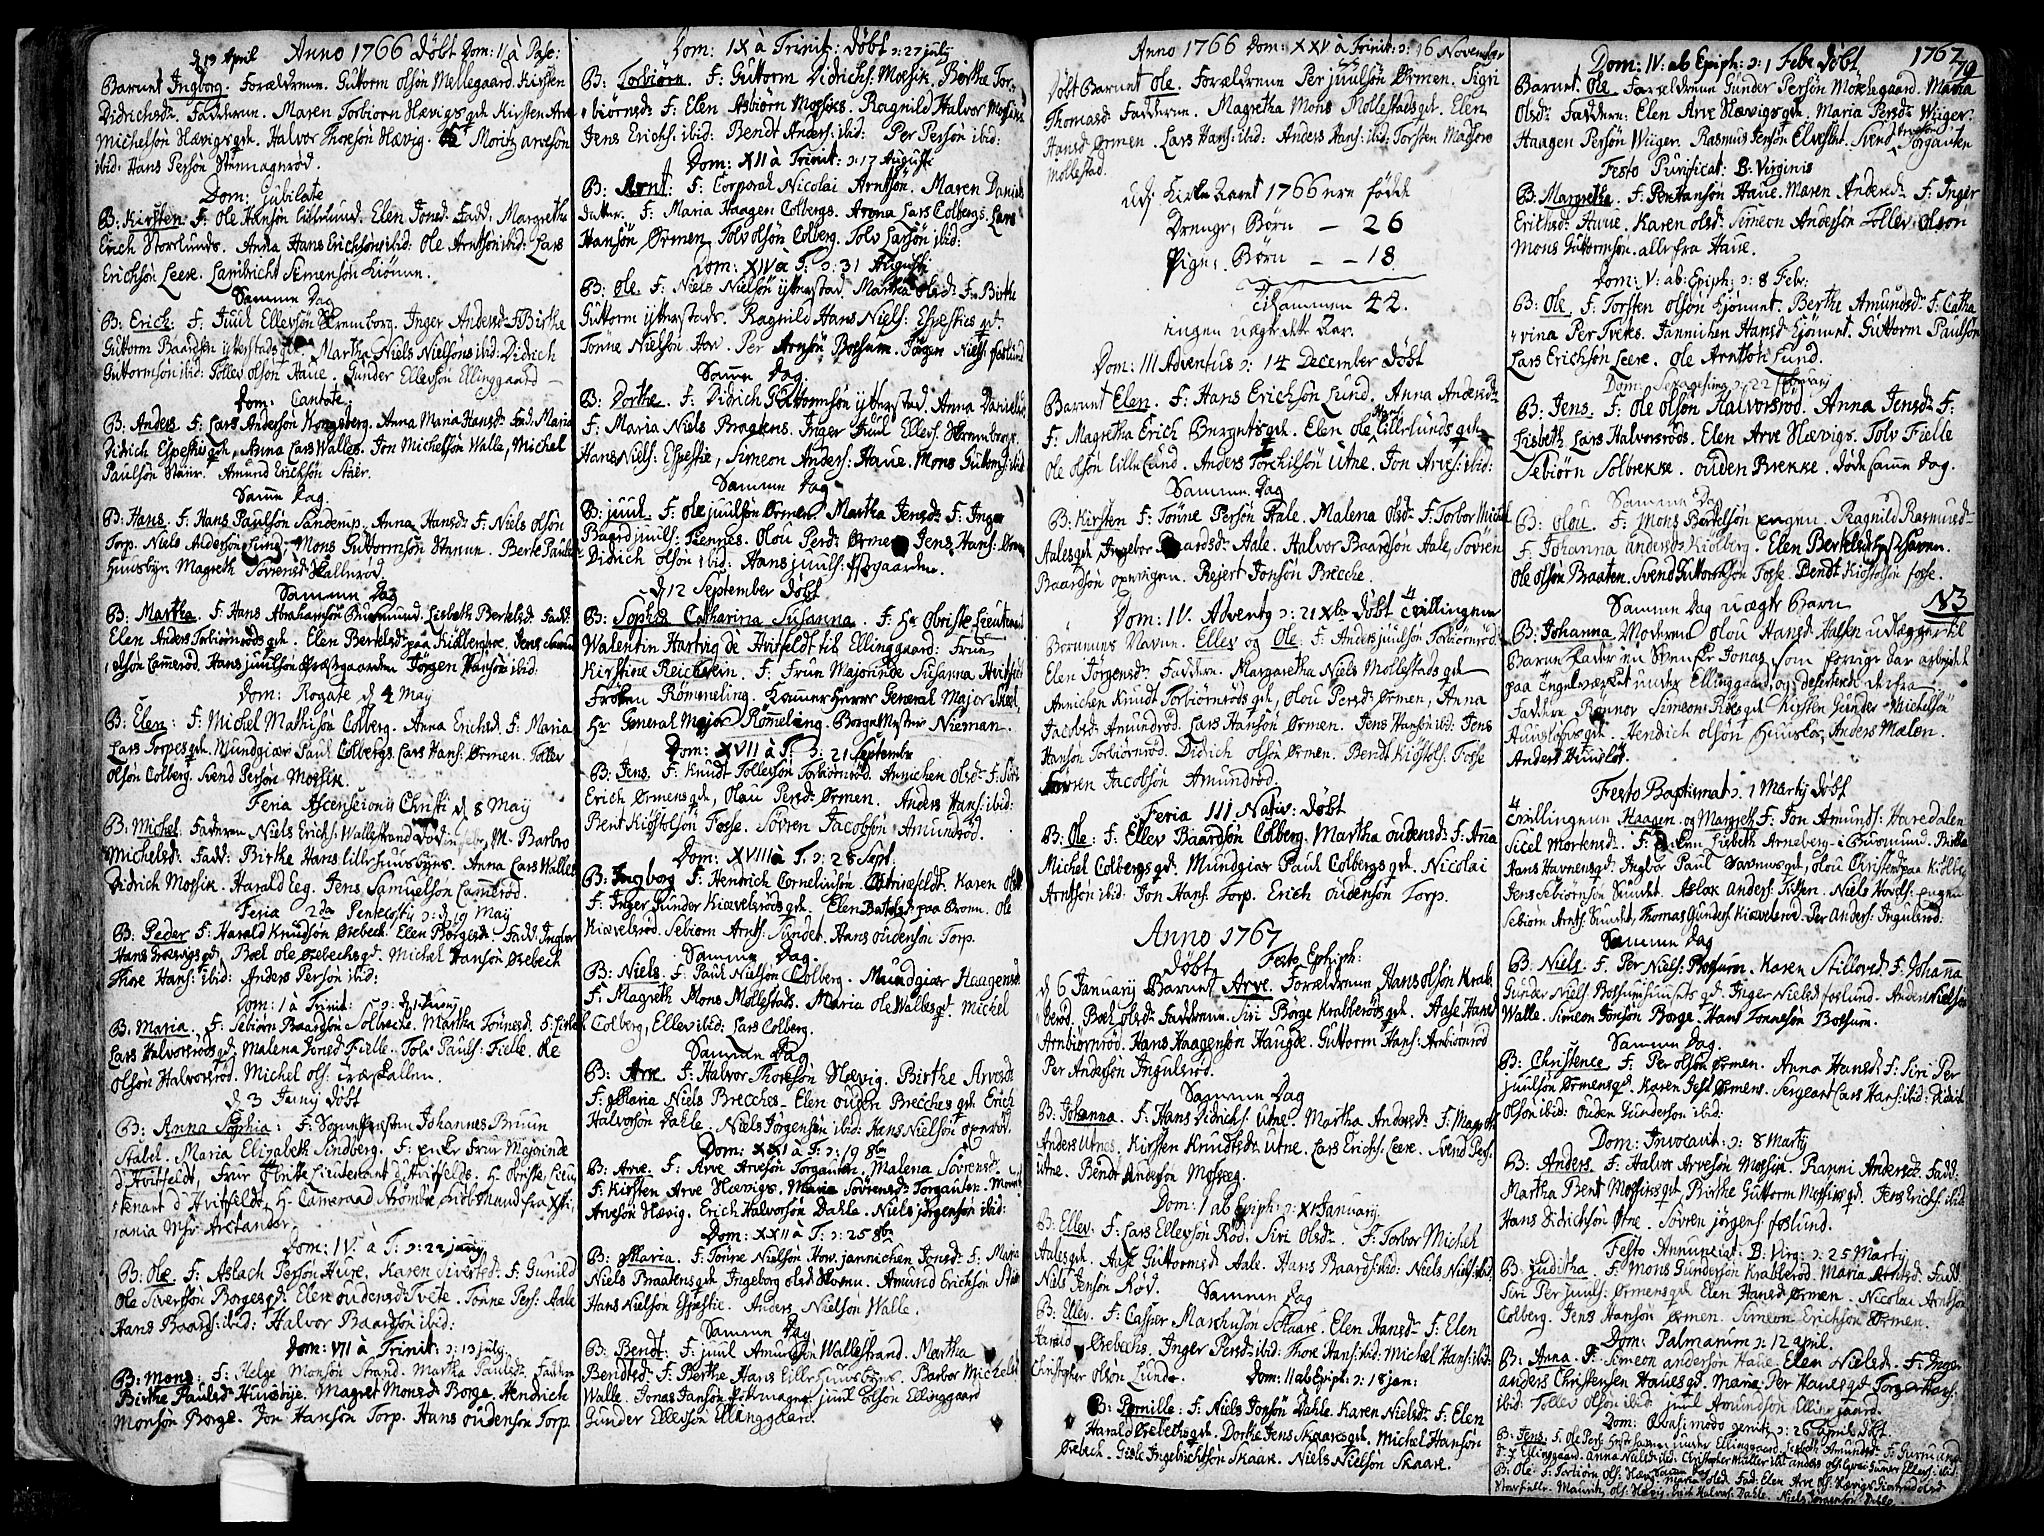 d 13 April Anno 1766 døbt Dom: II à Pasc:
Barnet Ingborg. Forældrene. Guttorm olsøn Møllegaard. Kirsten
Didrichsd: Faddere. Maren Torbiørn Hævigs qd. Kirsten Arve
Michelsøn Hævigs qvd. Halvor Thoresøn Hævig. Moritz arvesøn
ibid: Hans Persøn Stenmagnrød.
Dom: Jubilate
B: Kirsten. F: Ole Hansøn Lillelund. Elen Jonsd: Fadd: Margretha
Erich Storlunds. Anna Hans Erichsøns ibid: Ole Arntsøn ibid: Lars
Erichsøn Leere. Lambricht Semensøn
Samme Dag
B: Erich. F: Juul Ellevsøn Skremborg. Inger Andersd: F: Birthe
Guttorm Baardsøn ytterstads qd. Martha Niels Nielsøns ibid: Didrich
Guttormsøn ibid: Tollev olsøn Haue. Gunder Ellevsøn Ellinggaard
Dom: Cantate
B: Anders. F: Lars Andersøn Kongsberg. Anna Maria Hansd: Fad: Maria
Didrich Espesties qd. Anna Lars Walles. Jon Michelsøn Walle, Michel
Paulsøn Stair. Amund Erichsøn Staer.
Samme Dag
B: Hans. F: Hans Paulsøn Sandemp. Anna Hansd: F: Niels olsøn
Torp. Niels Andersøn Lund. Mons Guttormsøn Berte Pauls
Huusbyn. Magreth Sovrensd: Skallerød.
Samme Dag
B: Martha. F: Hans Abrahamsøn Buemund. Lisbeth Bertelsd: Fadd:
Elen Anders Torbiørnrøds qd. Elen Bertelsd: paa Kiølberg
olsøn Camerød. Hans juulsøn Østgaarden Jørgen Hansøn ibid:
Dom: Rogate d 4 Maij
B: Elen: F: Michel Mathisøn Colberg. Anna Erichsd: F: Maria
Lars Torpes qd. Mundgiær Paul Colbergs. Lars Hans: Ørmen. Tollev
olsøn Colberg. Svend Persøn Mossik.
Feria Ascensionis Christi d 8 Maij
B: Michel. Faderen Niels Erichs: Wallestrand M. Barbro
Michelsd: Fadd: Birthe Hans lille huusbyes. Anna Lars Walles
Didrich Mossik. Harald Eeg. Jens Samuelsøn Camerød.
Feria 2da Pentecosty d 19 Maij
B: Peder F: Harald Knudsøn Ørebech. Elen Børgesd: Fadd: Ingbor
Hans Ørebechs qd. Boel ole Ørebechs qd. Michel Hansøn Ørebech
Thore Hans: ibid: Anders Persøn ibid:
Dom: I à Trinit: d 1 Junij
B: Maria. F: Sebiørn Baardsøn Solbrecke. Martha Tønnesd: F: Lisbeth
Lars Halvorsrøds qd. Malena Jonsd Fielle. Tolv Pauls: Fielle. Ole
olsøn Halvorsrød. Michel ols: træskallen.
d 3 Junij døbt
B: Anna Sophia: F: Sognepresten Johannes Bruun
Stabel. Maria Elizabeth Lindberg. F: enke Frue Majorinde
d'Hvitfeldt, Frue Obriste Lieutenant d'Hvitfelds. H: Obriste Lieu
tenant d'Hvitfeldt. H: Cameraad Strombe fra Xsti:
ania Mfr: Arctander
Dom: IV à T: d 22 junij
B: Ole F: Aslach Persøn Huse. Karen Sivertsd: F: Gunild
Ole Sivertsøn Borges qd: Elen oudensd Tvete. Tønne Pers: Aale
Hans Baards: ibid: Halvor Baardsøn ibid:
Dom: VII à Trinit: d 13 july
B: Mons: F: Helge Monsøn Strand. Martha Paulsd: Faddere
Birthe Paulsd Huusbye. Magret Monsd Borge. Hendrich
Monsøn Borge. Jon Hansøn Torp. Hans oudensøn Torp.
Dom: IX à Trinit: døbt d: 27 july
B: Torbiørn. F: Guttorm Didrichs: Mossik. Berthe Tor:
biørnsd: F: Elen Asbiørn Mossiks. Ragnild Halvor Mossiks
Jens Erichs: ibid: Bendt Anders: ibid: Per Persøn ibid:
Dom: XII à Trinit: d: 17 Augusti
B: Arnt: F: Corporal Nicolai Arntsøn. Maren Daniels
datter. F: Maria Haagen Colbergs. Arona Lars Colbergs. Lars
Hansøn Ørmen. Tolv olsøn Colberg. Tolv Larsøn ibid:
Dom: XIV à T: d: 31 Augusti
B: Ole. F: Niels Nielsøn ytterstad. Martha olsd: F: Birthe
Guttorm ytterstads. Ragnild Hans Niels: Espesties qd:
Tønne Nielsøn How. Per Arnsøn Bossum. Jørgen Niels: foslund
Samme Dag
B: Dorthe. F: Didrich Guttormsøn ytterstad. Anna Danielsd:
F: Maria Niels Bragens. Inger Juul Ellevs: Skremborgs.
Hans Niels: Espestie, Simeon Anders: Haue. Mons Guttorms: ibid
Samme Dag
B: juul. F: ole juulsøn Ørmen. Martha Jensd: F: Inger
Baard juuls: Tiennes. Olou Persd: Ørmen Jens Hans: Ørmen
Didrich olsøn ibid: Hans juuls: Østgaarden.
d 12 September døbt
B: Sophia Catharina Susanna. F: Hr Obriste Lieutenant
Walentin Hartvig de Hvitfeldt til Ellinggaard: Frue
Kirstine Reichwein. F: Frue Majorinde Susanna Hvitfeldt
Frøken Rømmeling. Kammer Herre General Major Skeel,
Hr General Major Rømmeling. Borge Mester Nieman.
Dom: XVII à T: d: 21 September
B: Jens. F: Knudt Tollevsøn Torbiørnrød. Annichen olsd: F: Siri
Erich Ørmens qd, Olau Persd: Ørmen. Anders Hans: ibid:
Bent Kiøstolsøn Fosse. Søvren Jacobsøn Amundrød.
Dom: XVIII à T: d: 28 Sept.
B: Ingborg F: Hendrich Corneliusøn Karen ols
F: Inger Gunder Kiævelsrøds qd. Elen paa Brønn. Ole
Kiævelsrød. Sebiørn Arnts: Sundet. Hans oudensøn Torp.
Samme Dag.
B: Niels. F: Paul Nielsøn Colberg. Mundgiær Haagensd
F: Magreth Mons Møllestads. Maria Ole Walles qd. Michel
Colberg, Ellev ibid: Lars Colberg.
Samme Dag
B: Arve. F: Halvor Thoresøn Hævig. Birthe Arvesd:
F: Maria Niels Brecches. Elen ouden Brecches qd. Erich
Halvorsøn Dahle. Niels Jørgensøn ibid: Hans Nielsøn
Dom: XXI à T: d: 19 8br
B: Arve. F: Arve Arvesøn Torgauten. Malena Sovrensd.
F: Kirsten Arve Hævigs. Maria Sovrensd: Torgauten.
Arvesøn Hævig. Erich Halvorsøn Dahle. Niels jørgensøn ibid:
Dom: XXII à T: d: 25 8br
B: Maria. F: Tønne Nielsøn How. jannichen Jonsd: F: Maria
Niels Braatens qd. Ingeborg olsd Amund Erichsøn
Hans Nielsøn Espestie. Anders Nielsøn Walle.
Samme Dag
B: Bendt: F: juul Amunsøn Wallestrand. Martha
Bendtsd: F: Berthe Hans Lille huusbyes. Barbor Michelsd
Walle. Jonas Jansøn juul olsøn Ellinggaard
Gunder Ellevsøn Ellinggaard.
Anno 1766 Dom: XXV à Trinit: d: 16 November
Døbt Barnet Ole. Forældrene Per juulsøn Ørmen. Sigri
Thomasd: Faddere. Magretha Mons Mollestads qd. Elen
Hansd Ørmen. Lars Hans: ibid: Anders Hans: ibid: Torsten
Mollestad.
udj Kirke Aaret 1766 ere fødde
Drenge Børn — 26
Pige. Børn — — 18
Tilsammen 44.
ingen uægte dette Aar.
Dom: III Adventus d: 14 December døbt
Barnet Elen. F: Hans Erichsøn Lund. Anna Andersd:
F: Magretha Erich qd. Elen ole Lillelunds qd.
Ole olsøn lille Lund. Anders Torchilsøn Utne. Jon Arves: ibid:
Samme Dag
B: Kirsten F: Tønne Persøn Aale. Malena olsd: F: Torbor Michel
Aales qd. Ingebor Baardsd: Aale. Halvor Baardsøn Aale, Sovren
Baardsøn Rejert Jonsøn Brecche.
Dom: IV. Adventg d: 21 Xbr døbt tvillingerne
Børnenes Navne. Ellev og Ole. F: Anders juulsøn Torbiørnrød
Elen Jørgensd: Faddere. Margaretha Niels Mollestads qd
Annichen Knudt Torbiørnrøds qd, Olou Persd: Ørmen, Anna
Jacobsd: Amundrød. Lars Hansøn Ørmen. Jens Hansøn ibid: Jens
Hansøn Torbiørnrød. Didrich olsøn Ørmen. Bendt Kiøstols: Fosse
Sovren Jacobsøn Amundrød.
Feria III Nativ: døbt
B: Ole: F: Ellev Baardsøn Colberg. Martha oudensd: F: Anna
Michel Colbergs qd. Mundgiær Paul Colbergs qd. Nicolai
Arntsøn ibid: Jon Hans: Torp. Erich oudensøn Torp.
Anno 1767
døbt Festo Ephiph:
d 6 Januarij Barnet Arve. Forældrene Hans olsøn Krab:
berød. Boel olsd: Faddere. Siri Børge Krabberøds qd. Aase Hansd
Arnbiørnrød. Hans Haagensøn Haugde. Guttorm Hans: Arnbiørnrød
Per Andersøn Ingulsrød.
Samme Dag
B: Johanna. F: Hans Didrichs: Utne. Martha Andersd: F: Magreth
Anders Utnes. Kirsten Knudtsd: Utne. Lars Erichs: Leere. Svend Pers:
Utne. Bendt Andersøn Mosseeg.
Dom: I ab Epiph: d: XI January.
B: Ellev. F: Lars Ellevsøn Rød. Siri Olsd: F: Torbor Michel
Aales qd. Aase Guttormsd: Aale. Hans Baards: ibid: Niels Niels: ibid:
Niels Jensøn Rød. Samme Dag
B: Ellev. F: Casper Marchusøn Skaare. Elen Hansd: F: Elen
Harald Ørebechs. Inger Persd: ibid: Thore Hans: ibid: Michel Hans: ibid:
Christopher olsøn Lunde. Dom: II ab Epiph: d: 18 jan:
B: Pernille: F: Niels Jonsøn Dahle. Karen Nielsd: F: Elen
Harald Ørebechs qd. Dorthe Jens Skaares qd. Michel Hansøn
Ørebech. Gisle Ingebrichtsøn Skaar. Niels Nielsøn Skaare.
Dom: IV: ab Epiph: d: 1 Febr døbt 1767
79
Barnet Ole. Forældrene Gunder Persøn Møklegaard. Maria
Olsd: Faddere: Elen Arve Hævigs qd. Maria Persd: Wiiger.
Haagen Persøn Wiiger. Rasmus Persøn Svend Torgauten
Festo Purificat: B: Virginis
B: Margretha. F: Per Hansøn Haue. Maren Andersd: F: Inger
Erichsd: Haue. Karen olsd: Simeon Andersøn Tollev olsøn
Mons Guttormsøn. alle fra Haue.
Dom: V: ab: Epiph: d: 8 Febr:
B: Ole. F: Torsten olsøn Kjønnet. Berthe Amundsd: F: Catha
rina Per Tveks. Jannichen Hansd: Kjønnet. Guttorm Paulsøn
Lars Erichsøn Leere. Ole Arntsøn Lund.
Dom: Sexagesima d: 22 Februarij
B: Jens. F: Ole olsøn Halvorsrød. Anna Jensd: F:
Lisbeth Lars Halvorsrøds. Elen Arve Hævigs. Tolv Fielle
Sebiørn Solbrekke. ouden Brekke. døde samme dag.
Samme Dag
B: Olou. F: Mons Bertelsøn engen. Ragnild Rasmusd:
F: Johanna Anders Kiølberg. Elen Bertelsd: Haven.
Ole olsøn Braaten. Svend Guttormsøn Fosse. Bendt Kiøstolsøn fosse.
Samme Dag uægte Barn N3
B: Johanna. Moderen olou Hansd Halsen udlegger til
Barne fader en Svensk Jonas som forrige Aar arbejdet
paa Engelværket under Ellinggaard, og deserterede derfra
Faddere Rønnov Simeon Roes qd. Kirsten Gunder Michelsøn
Huuslons qd. Hendrich olsøn Huuslos, Anders Mælen.
Anders Huusløs.
Festo Baptismat d: 1 Martij døbt
Tvillingerne Haagen og Margreth F: Jon Amunds: Haredalen
Sicel Mortensd: F: Lisbeth Arneberg Buemund. Birthe
Hans Havnens qd: Ingbor Paul qd, olou Christens paa Kiølberg
Jens Sebiørnsøn Sundet. Aslak Anders: Niels Hovels:
Sebiørn Arnts: Sundet, Thomas Gunders: Kiævelsrød. Per Anders: Ingulsrød:
Samme Dag
B: Niels. F: Per Niels: Bossum. Karen F: Johanna
Gunder Niels: Bossum qd. Inger Nielsd foslund. Anders Nielsøn
Walle. Simeon Jonsøn Borge. Hans Tonnesøn Bossum.
Samme Dag.
B: Christence F: Per olsøn Ørmen. Anna Hansd: F: Siri Per
juulsøn Ørmens qd. Karen Jens Ørmens. Sergeant Lars Hans: ibid: Didrich
olsøn ibid: ouden Gundersøn ibid:
Dom: Invocavit: d: 8 Martij
B: Anders. F: Halvor Arvesøn Mossik. Ranni Andersd: Fadd:
Martha Bent Mossiks qd. Birthe Guttorm Mossiks qd. Jens Erichs: ibid
Hans Didrichsøn Øtne. Søvren jørgens: foslund.
Festo Annunciat: B: Virg: d: 25 Martij
B: Juditha. F: Mons Gundersøn Krabberød. Maria Arntsd: Fadd:
Siri Per juuls: Ørmens qd Elen Hansd Ørmen. Nicolai Arntsøn
Colberg. Jens Hansøn Ørmen. Simeon Erichsøn Ørmen.
Dom: Palmarum d: 12 april.
B: Anna. F: Simeon andersøn Haue. Elen Nielsd: F: Inger
anders Christensen Haues qd. Maria Per Haues qd Torger Hans:
ibid: Tollev olsøn ibid: juul Amundsøn Ellinggaard.
Dom: Quasi modo geniti d: 26 april døbt
B: Jens. F: Ole Pers: under Ellinggaard. Lisbeth Amundsd: F: Gurmand
Ellinggaard. Anna Niels ibid. Christopher Muller ibid anders ols: Gunder Ellevs: ibid:
B: Ole F: Torbiørn ols: Maria olsd Fad: Elen Arve ols: Hævigs
Storfielle. Maurits ols: Hævig. Erich Halvors: Dahle. Niels Jørgensøn Dahle